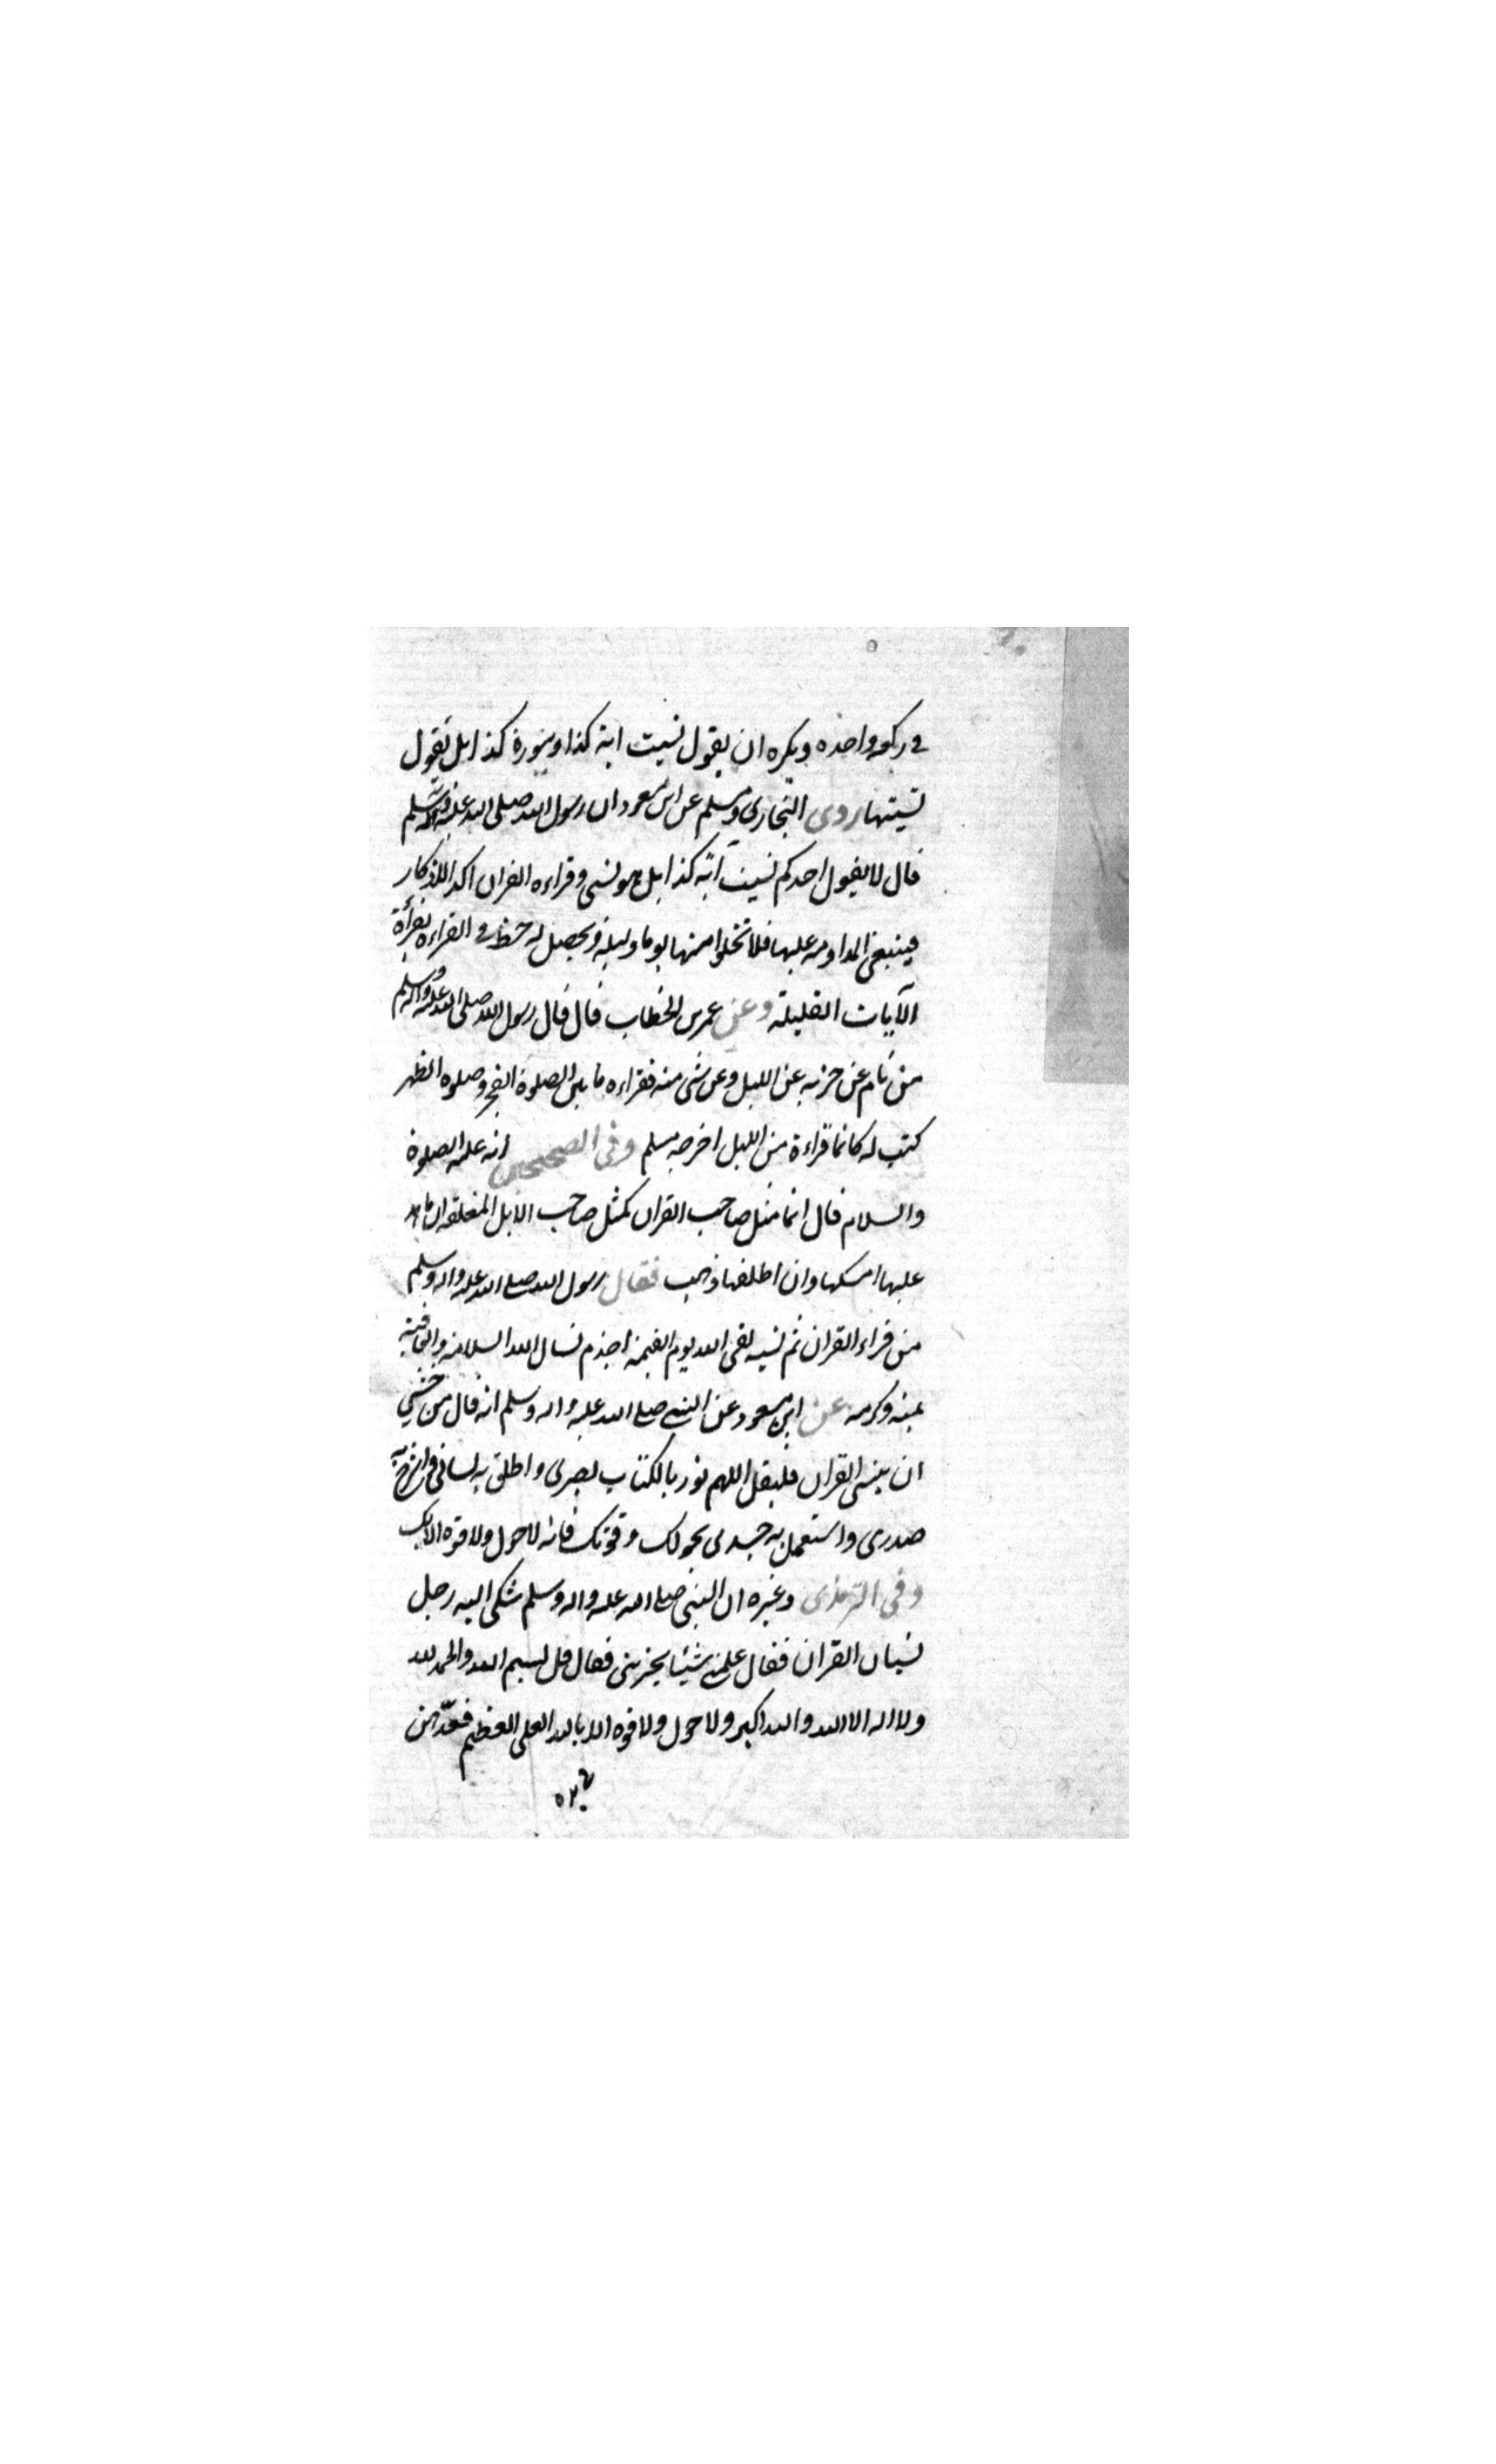 في ركعه واحده ويكره ان يقول نسيت اية كذا وسورة كذا بل تقول
نسيتها روى البخاري ومسلم عن ابن مسعود ان رسول الله صلى الله عليه واله وسلم
قال لا يقول احدكم نسيت آية كذا بل هو نسي وقراءه القران اكد الاذكار
فينبغي المداومه عليها فلا تخلوا منها يوما وليله ويحصل له حظ في القراءه بقرأة
الآيات القليلة وعن عمر بن الخطاب قال قال رسول الله صلى الله عليه واله وسلم
من نام عن حزبه عن الليل وعن شي منه فقراءه ما بين الصلوة الفجر وصلوه الظهر
كتب له كانما قراءة من الليل اخرجه مسلم وفى الصحيحين انه عليه الصلوة
والسلام قال انما مثل صاحب القران كمثل صاحب الابل المعلقه ان
عليها امسكها وان اطلقها ذهب فقال رسول الله صلى الله عليه واله وسلم
من قراء القران ثم نسيه لقى الله يوم القيمة اجذم نسال الله السلامة والعافية
بمنه وكرمه عن ابن مسعود عن النبي صلى الله عليه واله وسلم انه قال من خشي
ان ينسى القران فليقل اللهم نور بالكتاب بصرى واطلق به لساني واشرح به
صدرى واستعمل به جسدى بحولك وقوتك فانه لا حول ولا قوه الا بك
وفي الترمذى وغيره ان النبى صلى الله عليه واله وسلم شكى اليه رجل
نسيان القران فقال علمني شيئا يجزينى فقال قل بسم الله والحمد لله
ولا اله الا الله والله اكبر ولا حول ولا قوه الا بالله العلى العظيم فعدهن